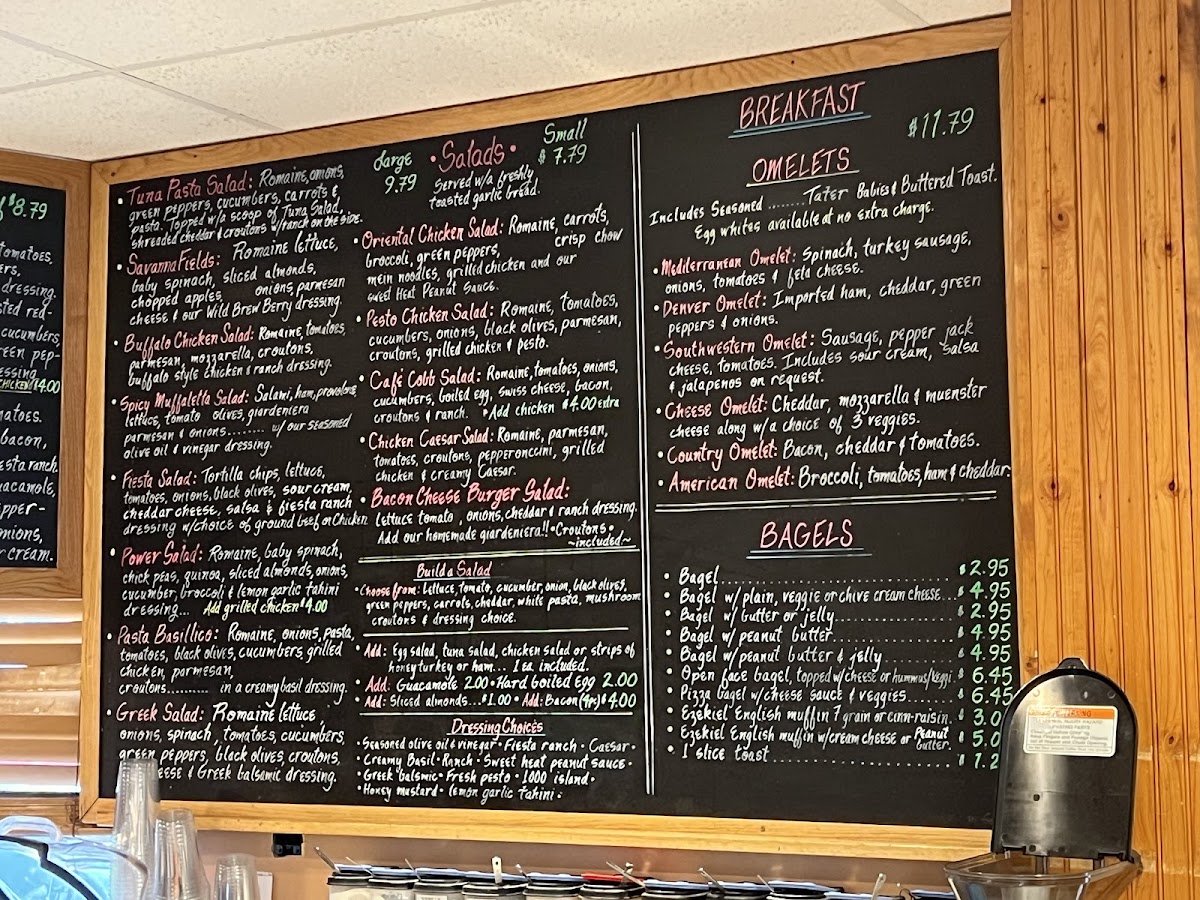 $8.79
tomatoes,
ers,
dressing.
sted red-
cucumbers,
reen pep-
essing.
CHICKEN $14.00
matoes.
bacon,
esta ranch.
uacamole,
epper-
onions,
r cream.
• Tuna Pasta Salad: Romaine, onions,
green peppers, cucumbers, carrots &
pasta. Topped w/a scoop of Tuna Salad,
shreaded cheddar & croutons w/ranch on the side.
• Savanna Fields: Romaine lettuce,
baby spinach, sliced almonds,
chopped apples onions, parmesan
cheese & our Wild Brew Berry dressing.
• Buffalo Chicken Salad: Romaine, tomatoes,
parmesan, mozzarella, croutons,
buffalo style chicken & ranch dressing.
• Spicy Muffaletta Salad: Salami, ham, provolone,
lettuce, tomato olives, giardeniera
parmesan & onions........ w/ our seasoned
olive oil & vinegar dressing.
• Fiesta Salad: Tortilla chips, lettuce,
tomatoes, onions, black olives, sour cream,
cheddar cheese, salsa & fiesta ranch
dressing w/choice of ground beef or Chicken
• Power Salad: Romaine, baby spinach,
chick peas, quinoa, sliced almonds, onions,
cucumber, broccoli & lemon garlic tahini
dressing... Add grilled chicken $4.00
• Pasta Basillico: Romaine, onions, pasta,
tomatoes, black olives, cucumbers, grilled
chicken, parmesan,
croutons.......... in a creamy basil dressing.
• Greek Salad: Romaine lettuce,
onions, spinach, tomatoes, cucumbers,
green peppers, black olives, croutons,
eese & Greek balsamic dressing.
Large 9.79 • Salads • Small $7.79
Served w/a freshly
toasted garlic bread.
• Oriental Chicken Salad: Romaine, carrots,
broccoli, green peppers, crisp chow
mein noodles, grilled chicken and our
sweet Heat Peanut Sauce.
• Pesto Chicken Salad: Romaine, tomatoes,
cucumbers, onions, black olives, parmesan,
croutons, grilled chicken & pesto.
• Café Cobb Salad: Romaine, tomatoes, onions,
cucumbers, boiled egg, swiss cheese, bacon,
croutons & ranch. *Add chicken $4.00 extra
• Chicken Caesar Salad: Romaine, parmesan,
tomatoes, croutons, pepperoncini, grilled
chicken & creamy Caesar.
• Bacon Cheese Burger Salad:
lettuce tomato, onions, cheddar & ranch dressing.
Add our homemade giardeniera!! • Croutons •
~included~
Build a Salad
• Choose from: Lettuce, tomato, cucumber, onion, black olives,
green peppers, carrots, cheddar, white pasta, mushroom
croutons & dressing choice.
• Add: Egg salad, tuna salad, chicken salad or strips of
honey turkey or ham... 1 ea. included.
• Add: Guacamole 2.00 • Hard boiled Egg 2.00
• Add: Sliced almonds...$1.00 • Add: Bacon (4pc) $4.00
Dressing Choices
• Seasoned olive oil & vinegar • Fiesta ranch • Caesar •
• Creamy Basil • Ranch • Sweet heat peanut sauce •
• Greek balsmic • Fresh pesto • 1000 island •
• Honey mustard • lemon garlic tahini •
BREAKFAST
$11.79
OMELETS
Includes Seasoned ........ Tater Babies & Buttered Toast.
Egg whites available at no extra charge.
• Mediterranean Omelet: Spinach, turkey sausage,
onions, tomatoes & feta cheese.
• Denver Omelet: Imported ham, cheddar, green
peppers & onions.
• Southwestern Omelet: Sausage, pepper jack
cheese, tomatoes. Includes sour cream, salsa
& jalapenos on request.
• Cheese Omelet: Cheddar, mozzarella & muenster
cheese along w/ a choice of 3 veggies.
• Country Omelet: Bacon, cheddar & tomatoes.
• American Omelet: Broccoli, tomatoes, ham & cheddar.
BAGELS
• Bagel.............................. $2.95
• Bagel w/ plain, veggie or chive cream cheese...$4.95
• Bagel w/ butter or jelly.................. $2.95
• Bagel w/ peanut butter.................. $4.95
• Bagel w/ peanut butter & jelly........... $4.95
• Open face bagel, topped w/cheese or hummus/veggi. $6.45
• Pizza bagel w/cheese sauce & veggies....... $6.45
• Ezekiel English muffin 7 grain or cinn-raisin. $3.0
• Ezekiel English muffin w/cream cheese or Peanut butter. $5.0
• 1 slice toast.............................. $1.2